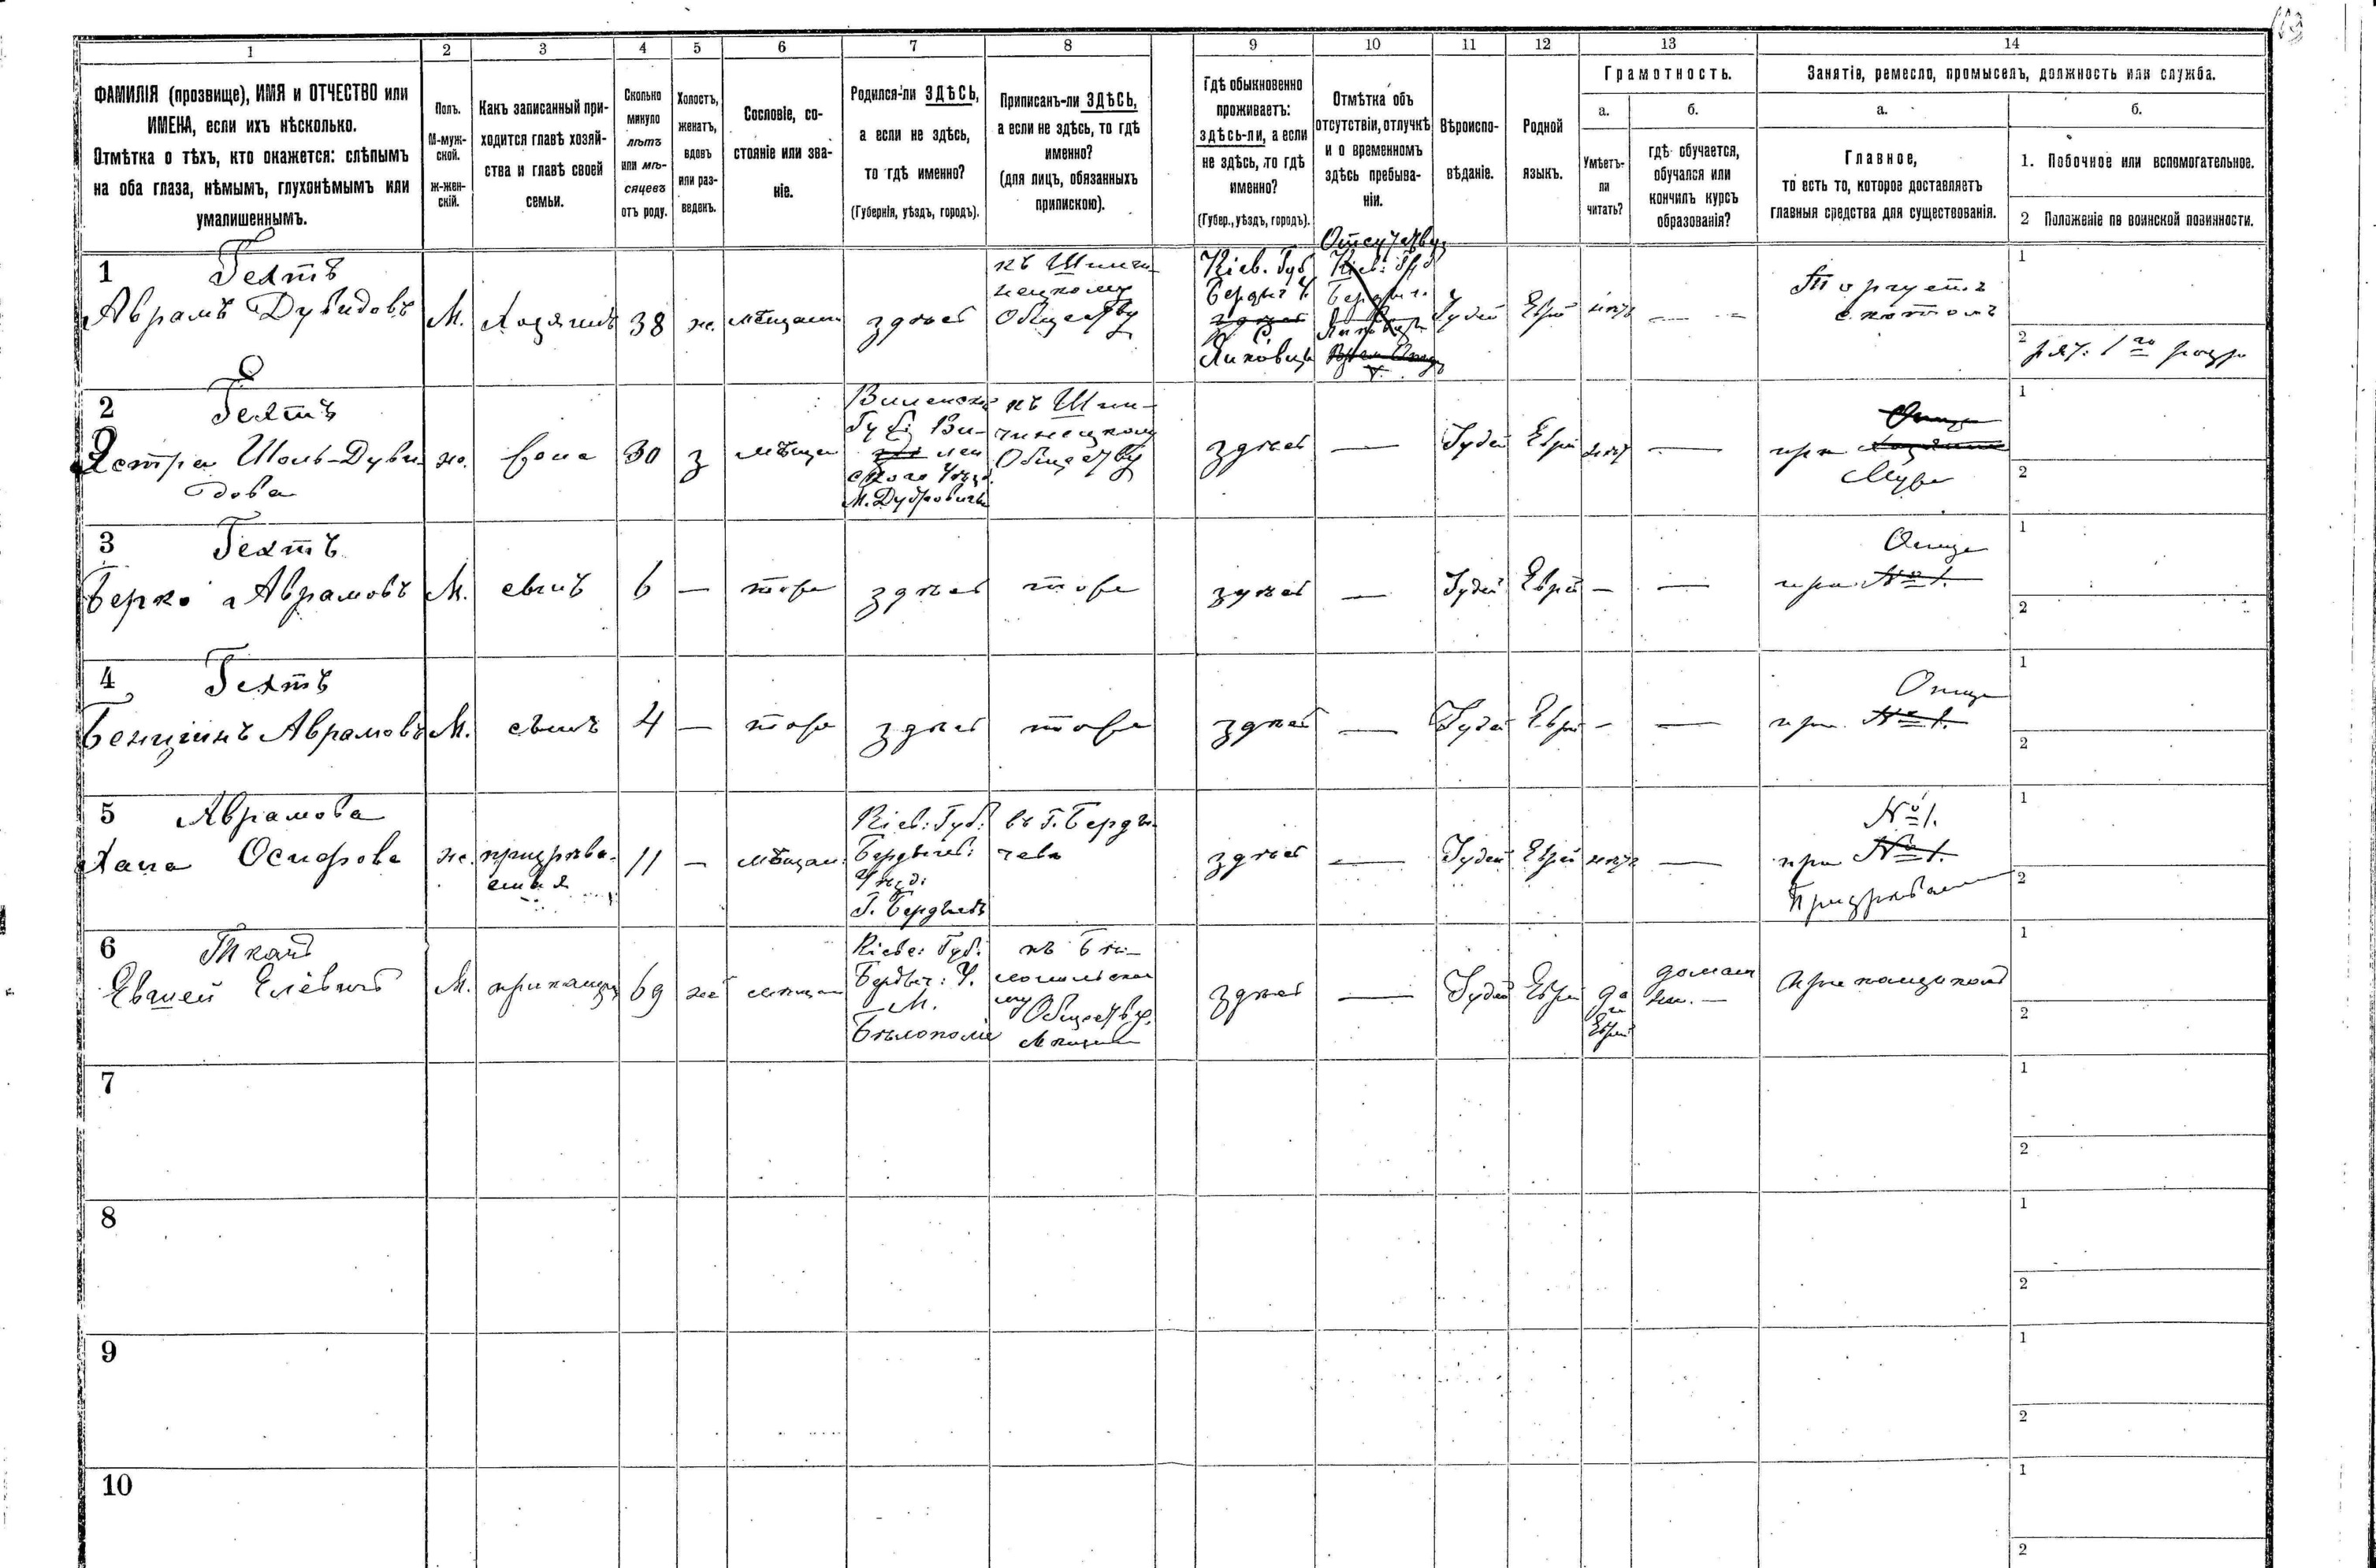 1
2
3
4
5
6
7
8
9
10
11
12
13
14
ФАМИЛІЯ (прозвище), ИМЯ и ОТЧЕСТВО или
ИМЕНА, если ихъ нѣсколько.
Отмѣтка о тѣхъ, кто окажется: слѣпымъ
на оба глаза, нѣмымъ, глухонѣмымъ или
умалишеннымъ.
Полъ.
М-муж-
ской.
ж-жен-
скій.
Какъ записанный при-
ходится главѣ хозяй-
ства и главѣ своей
семьи.
Сколько
минуло
лѣтъ
или мѣ-
сяцевъ
отъ роду.
Холостъ,
женатъ,
вдовъ
или раз-
веденъ.
Сословіе, со-
стояніе или зва-
ніе.
Родился-ли ЗДѢСЬ,
а если не здѣсь,
то гдѣ именно?
(Губернія, уѣздъ, городъ).
Приписанъ-ли ЗДѢСЬ,
а если не здѣсь, то гдѣ
именно?
(для лицъ, обязанныхъ
припискою).
Гдѣ обыкновенно
проживаетъ:
здѣсь-ли, а если
не здѣсь, то гдѣ
именно?
(Губер., уѣздъ, городъ).
Отмѣтка объ
отсутствіи, отлучкѣ
и о временномъ
здѣсь пребыва-
ніи.
Вѣроиспо-
вѣданіе.
Родной
языкъ.
Грамотность.
а.
Умѣетъ-
ли
читать?
б.
гдѣ обучается,
обучался или
кончилъ курсъ
образованія?
Занятія, ремесло, промыселъ, должность или служба.
а.
Главное,
то есть то, которое доставляетъ
главныя средства для существованія.
б.
1. Побочное или вспомогательное.
2 Положеніе по воинской повинности.
1 Гехтъ
Аврамъ Дувидовъ
М.
Хозяинъ
38
ж.
мѣщани
здѣсь
Обществу
Кіев. Губ
Бердич У.
здѣсь
С.
Отсутству
Іудей
Еврей
нѣтъ
Торгуетъ
1
2
2 Гехтъ
Шоль-Дуви
дова
ж.
Жена
30
з
мѣщан
Виленской
Губ: Ви-
лен
скаго Уѣзд.
Обществу
здѣсь
—
Іудей
Еврей
нѣтъ
—
при
Мужѣ
1
2
3 Гехтъ
Берко Аврамовъ
М.
сынъ
6
—
тоже
здѣсь
тоже
здѣсь
—
Іудей
Еврей
—
—
Отцѣ
при № 1.
1
2
4 Гехтъ
Бенціинъ Аврамовъ
М.
сынъ
4
—
тоже
здѣсь
тоже
здѣсь
—
Іудей
Еврей
—
—
Отцѣ
при № 1.
1
2
5 Аврамова
Хана Осифова
ж.
11
—
мѣщан:
Кіев: Губ:
Бердичев:
Уѣзд:
Г. Бердичевъ
въ Г. Берди-
чевѣ
здѣсь
—
Іудей
Еврей
нѣтъ
—
№ 1.
при № 1.
1
2
6 Ткачъ
М.
69
же
мѣщан
Кіеве: Губ.
Бердич: У.
М.
Бѣлополіе
къ Бѣ-
Обществу.
здѣсь
—
Іудей
Еврей
да
домаш
1
2
7
1
2
8
1
2
9
1
2
10
1
2